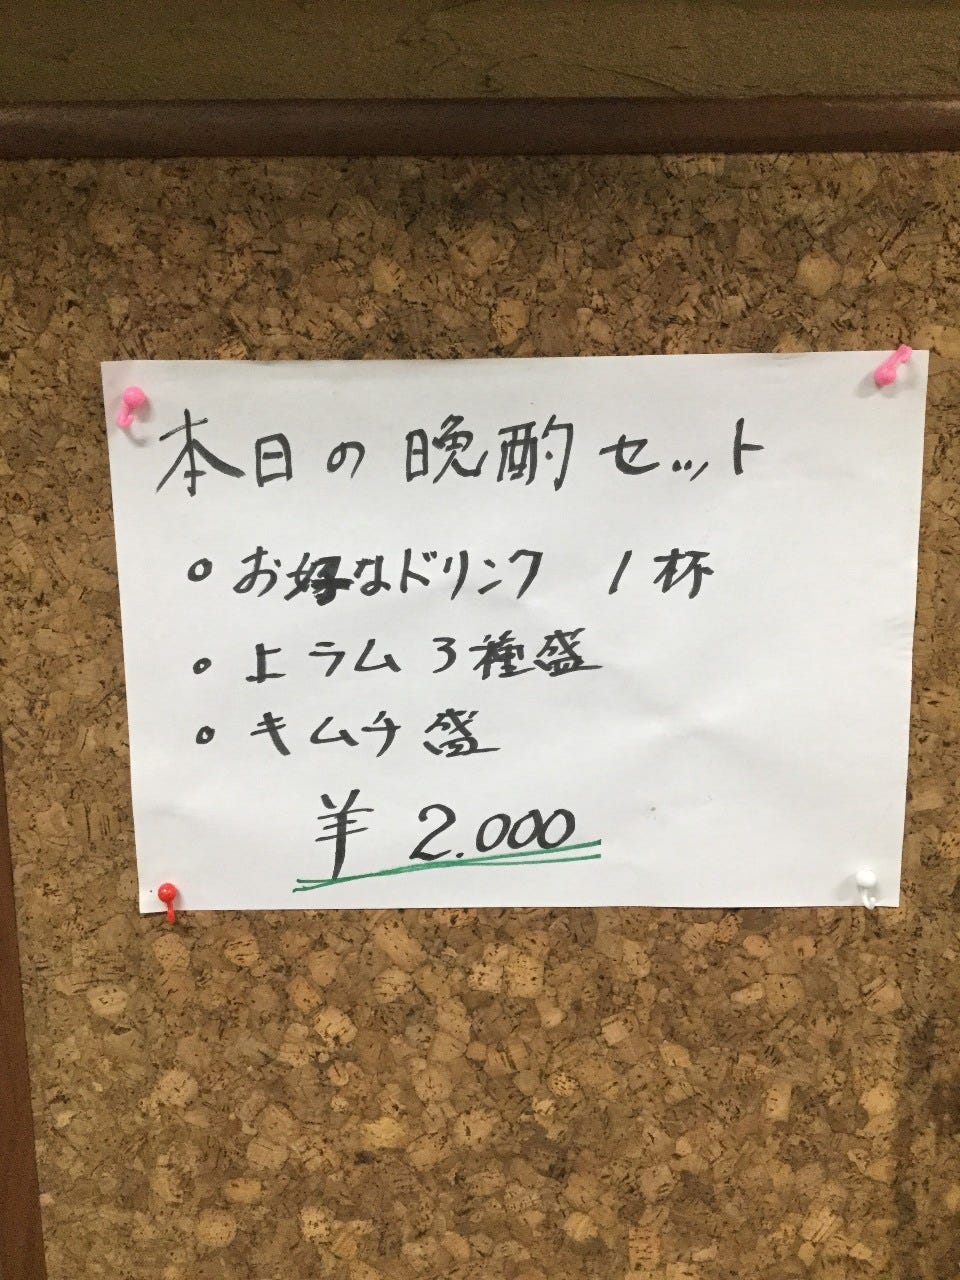 本日の晩酌セット
。お好なドリンク 1杯
。上ラム3種盛
。キムチ盛
¥2.000